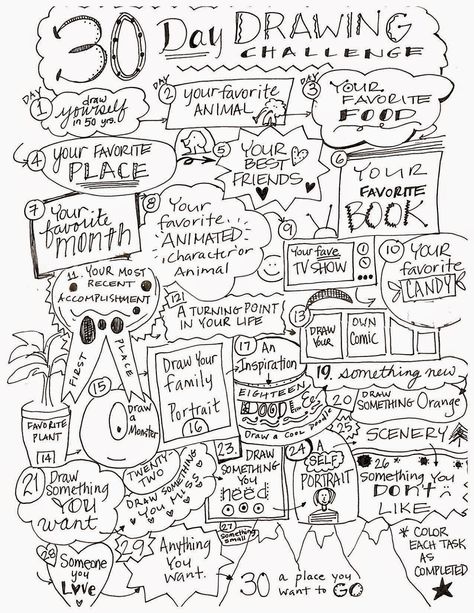 30 Day DRAWING
CHALLENGE
DAY
1
draw
yourself
in 50 yrs.
DAY
2
your favorite
ANIMAL
DAY
3
YOUR
FAVORITE
FOOD
4
YOUR FAVORITE
PLACE
5
YOUR
BEST
FRIENDS
6
YOUR
FAVORITE
BOOK
7
Your
favorite
month
8
Your
favorite
ANIMATED
character or
Animal
9
Your fave
TV SHOW
10
YOUR
favorite
CANDY
11. YOUR MOST
RECENT
ACCOMPLISHMENT
FIRST PLACE
12!
A TURNING POINT
IN YOUR LIFE
13
DRAW
YOUR
OWN
Comic
FAVORITE
PLANT
14
15
Draw
a Monster
Draw Your
Family
Portrait
16
17
An
Inspiration
EIGHTEEN
DOOD
Draw a Cool Doodle
19, something new
20 DRAW
SOMETHING Orange
21 Draw
Something
YOU
want
TWENTY-
TWO
DRAW SOMETHING
YOU MISS
23.
DRAW
SOMETHING
YOU
need
24 A
SELF
PORTRAIT
25
SCENERY
26
something You
DON'T
LIKE
27
something
small!
28
Someone
you
Love
29
Anything
You
Want.
30 a place you
want to GO
* COLOR
EACH TASK
AS
COMPLETED